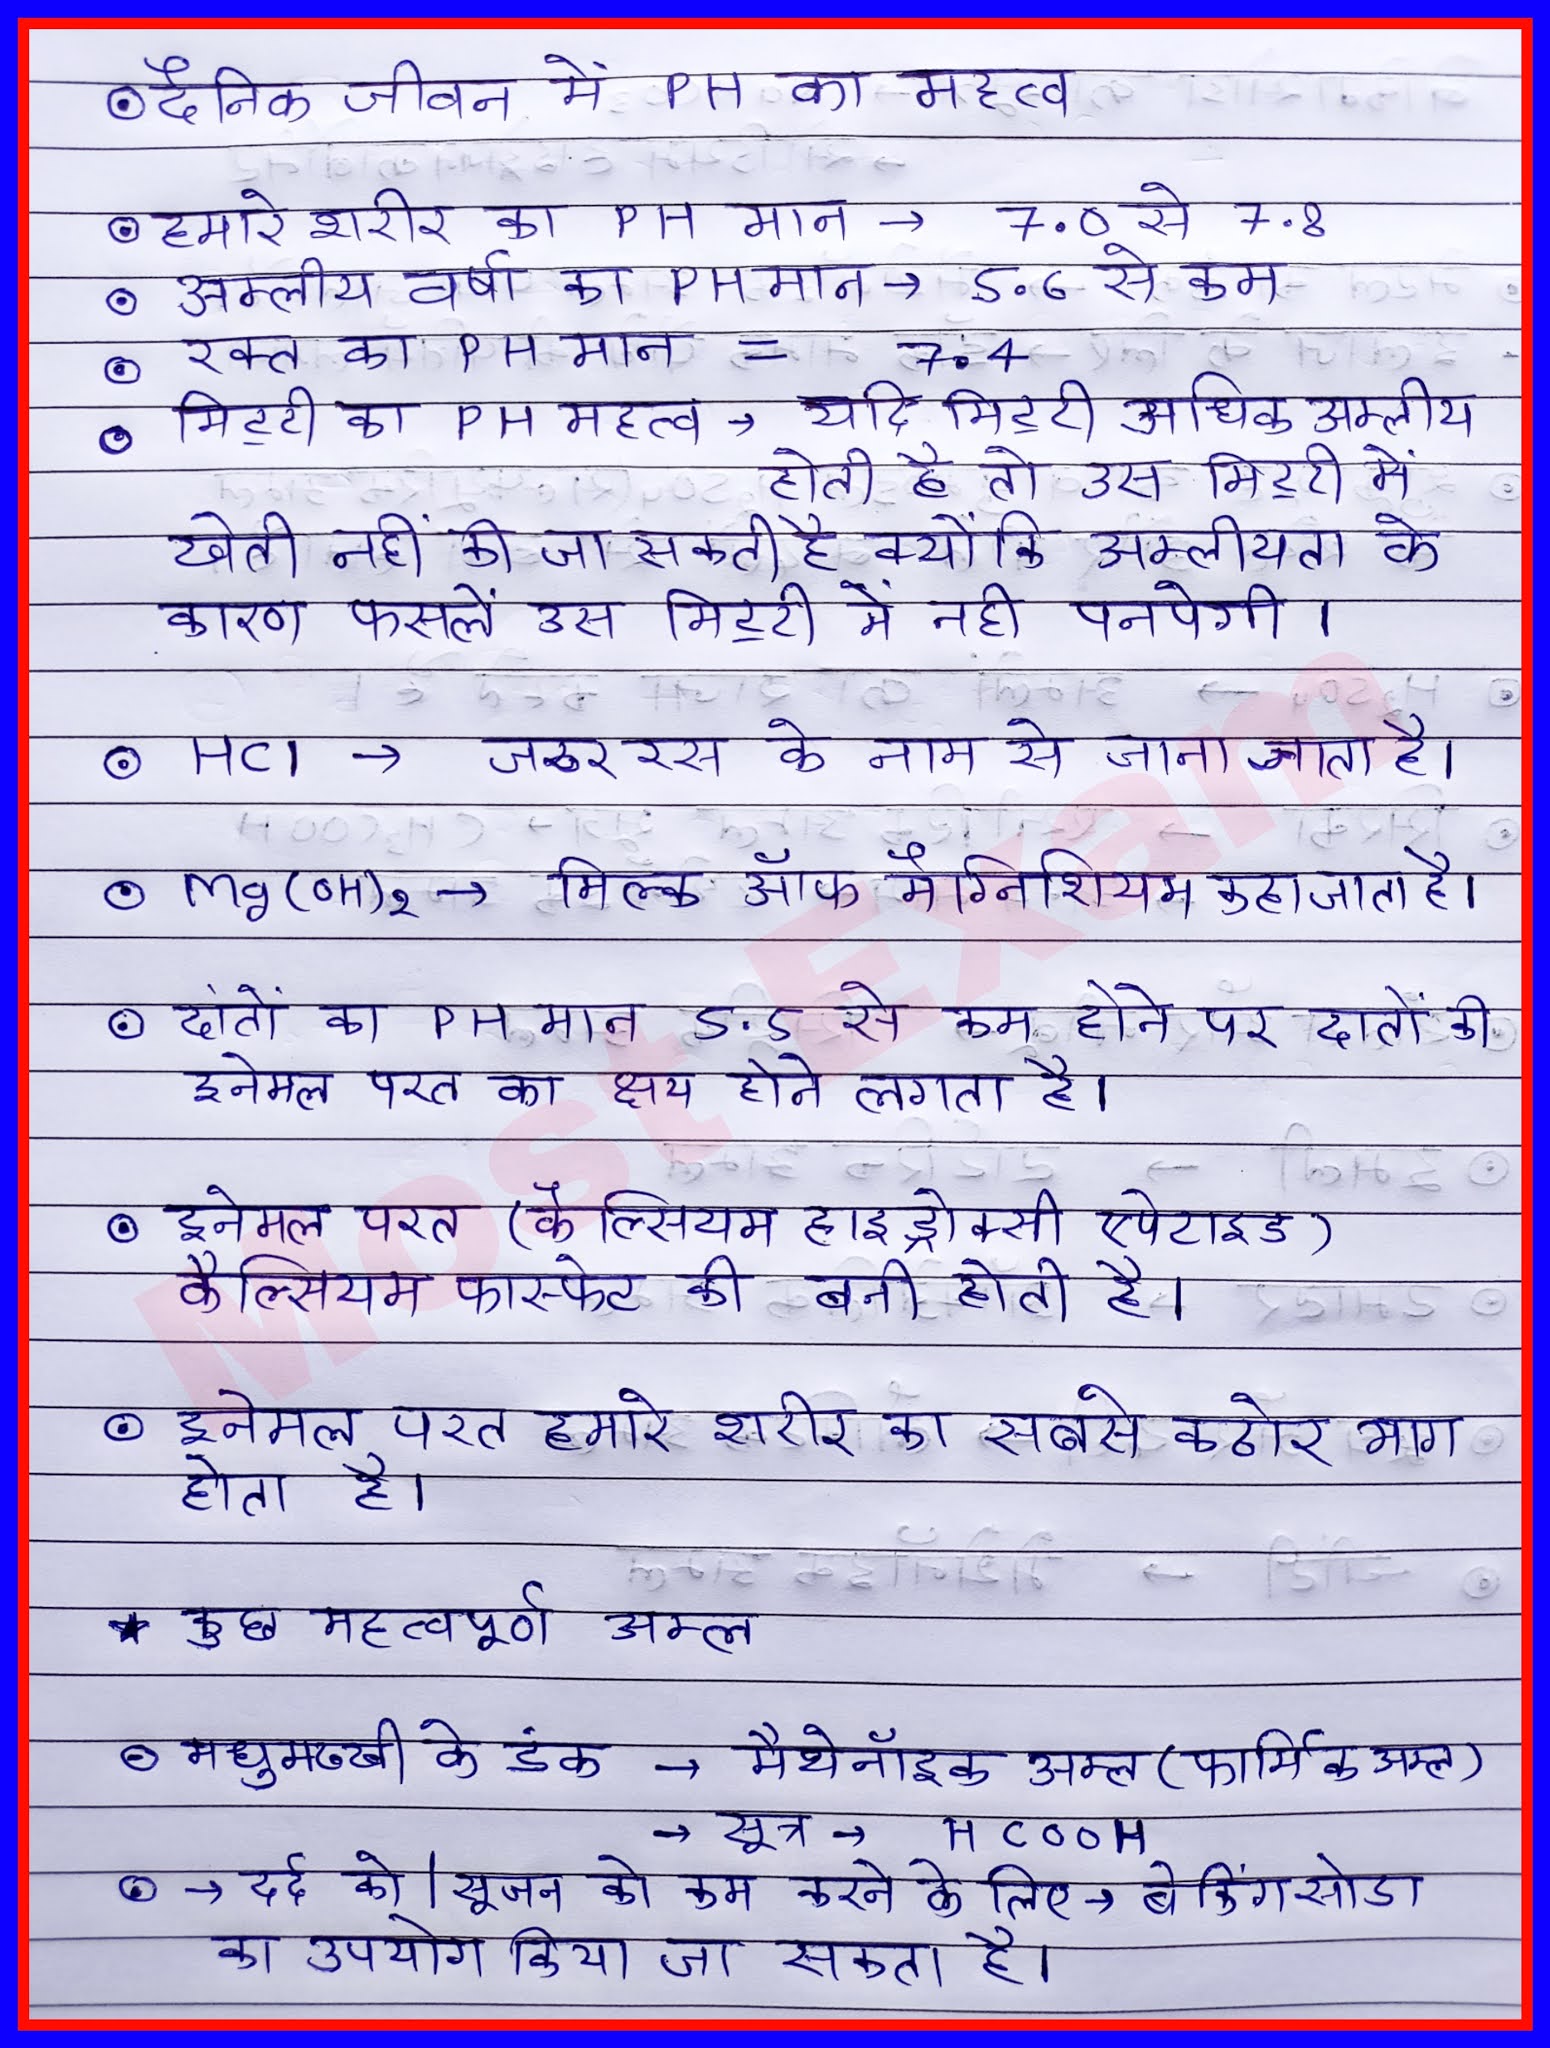 ⊙ दैनिक जीवन में PH का महत्व
⊙ हमारे शरीर का PH मान → 7.0 से 7.8
⊙ अम्लीय वर्षा का PH मान → 5.6 से कम
⊙ रक्त का PH मान = 7.4
⊙ मिट्टी का PH महत्व → यदि मिट्टी अधिक अम्लीय
होती है तो उस मिट्टी में
खेती नहीं की जा सकती है क्योंकि अम्लीयता के
कारण फसलें उस मिट्टी में नही पनपेगी ।
⊙ HCl → जठर रस के नाम से जाना जाता है।
⊙ Mg(OH)₂ → मिल्क ऑफ मैग्निशियम कहा जाता है।
⊙ दांतों का PH मान 5.5 से कम होने पर दातों की
इनेमल परत का क्षय होने लगता है।
⊙ इनेमल परत (कैल्सियम हाइड्रोक्सी एपेटाइड)
कैल्सियम फास्फेट की बनी होती है।
⊙ इनेमल परत हमारे शरीर का सबसे कठोर भाग
होता है।
★ कुछ महत्वपूर्ण अम्ल
⊙ मधुमख्खी के डंक → मैथेनॉइक अम्ल (फार्मिक अम्ल)
→ सूत्र → HCOOH
⊙ → दर्द को / सूजन को कम करने के लिए → बेकिंग सोडा
का उपयोग किया जा सकता है।
Most Exam